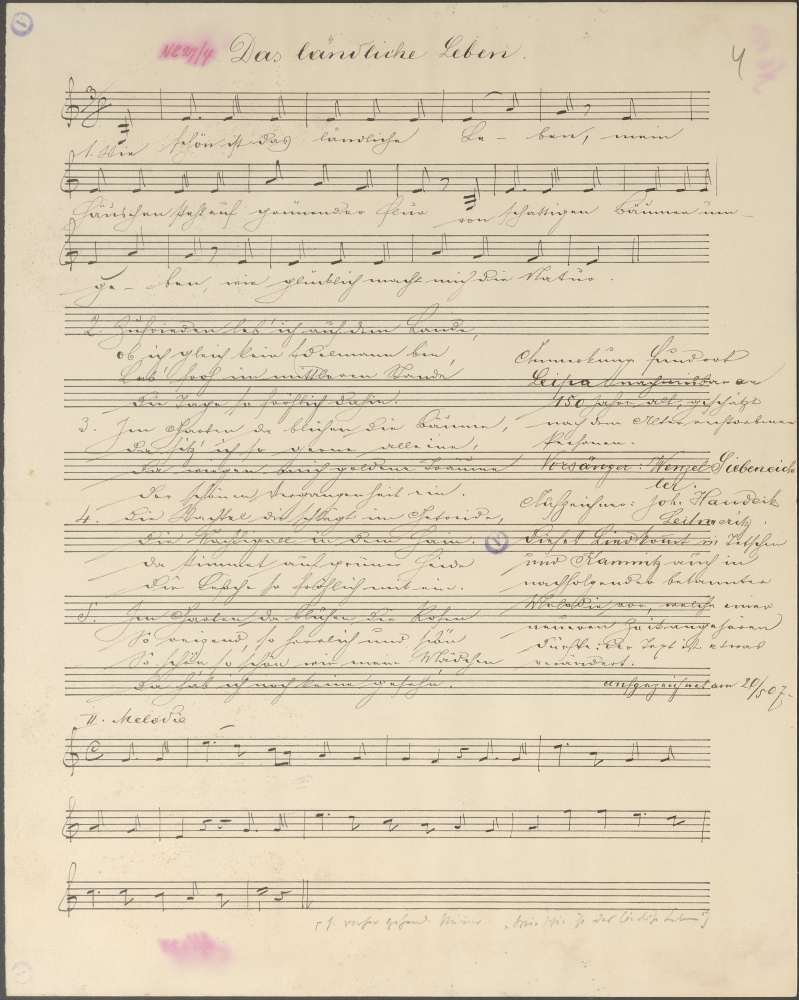 NE 27/4 Das ländliche Leben. 4
1. Wie schön ist das ländliche Le - ben, mein
Häuschen steht auf grünender Flur von schattigen Bäumen um -
ge - ben, wie glücklich macht mich die Natur.
2. Zufrieden leb' ich auf dem Lande,
ob ich gleich kein Edelmann bin,
Leb' froh im mittleren Stande
die Tage so fröhlich dahin.
3. Im Garten da blühen die Bäume,
da sitz' ich so gerne alleine,
da wiegen mich goldene Träume
der schönen Vergangenheit ein.
4. Die Wachtel die schlägt im Getreide,
die Nachtigall in dem Hain.
da stimmet auf grüner Heide
die Lerche so fröhlich mit ein.
5. Im Garten da blühen die Rosen
So reizend, so herrlich und schön
So schön so schön wie mein Mädchen
da hab ich noch keine gesehn.
Anmerkung: Fundort
Leipa nachweisbar an
150 Jahre alt, geschätzt
nach dem Alter verstorbener
Personen.
Vorsänger: Wenzel Siebeneich
ler.
Aufzeichner: Joh. Handeik
Leitmeritz.
Dieses Lied kommt in Tetschen
und Kamnitz auch in
nachfolgender bekannter
Melodie vor, welche einer
neueren Zeit angehören
dürfte: der Text ist etwas
verändert.
aufgezeichnet am 20/5 07.
II. Melodie